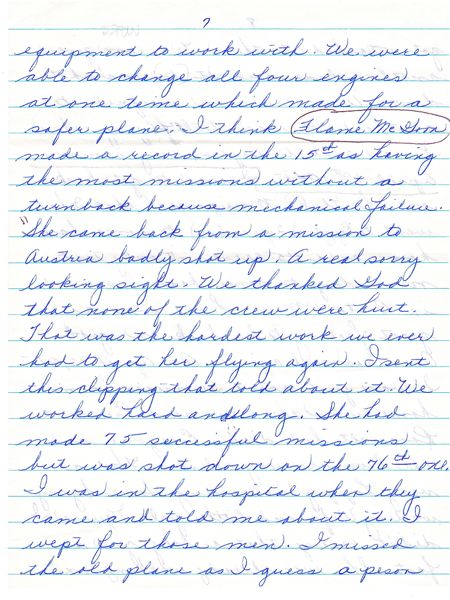 7
equipment to work with. We were
able to change all four engines
at one tome which made for a
safer plane. I think Flame McGoon
made a record in the 15th as having
the most missions without a
turnback because mechanical failure.
"She came back from a mission to
Austria badly shot up. A real sorry
looking sight. We thanked God
that none of the crew were hurt.
That was the hardest work we ever
had to get her flying again. I sent
this clipping that told about it. We
worked hard and long. She had
made 75 successful missions
but was shot down on the 76th one.
I was in the hospital when they
came and told me about it. I
wept for those men. I missed
the old plane as I guess a peson